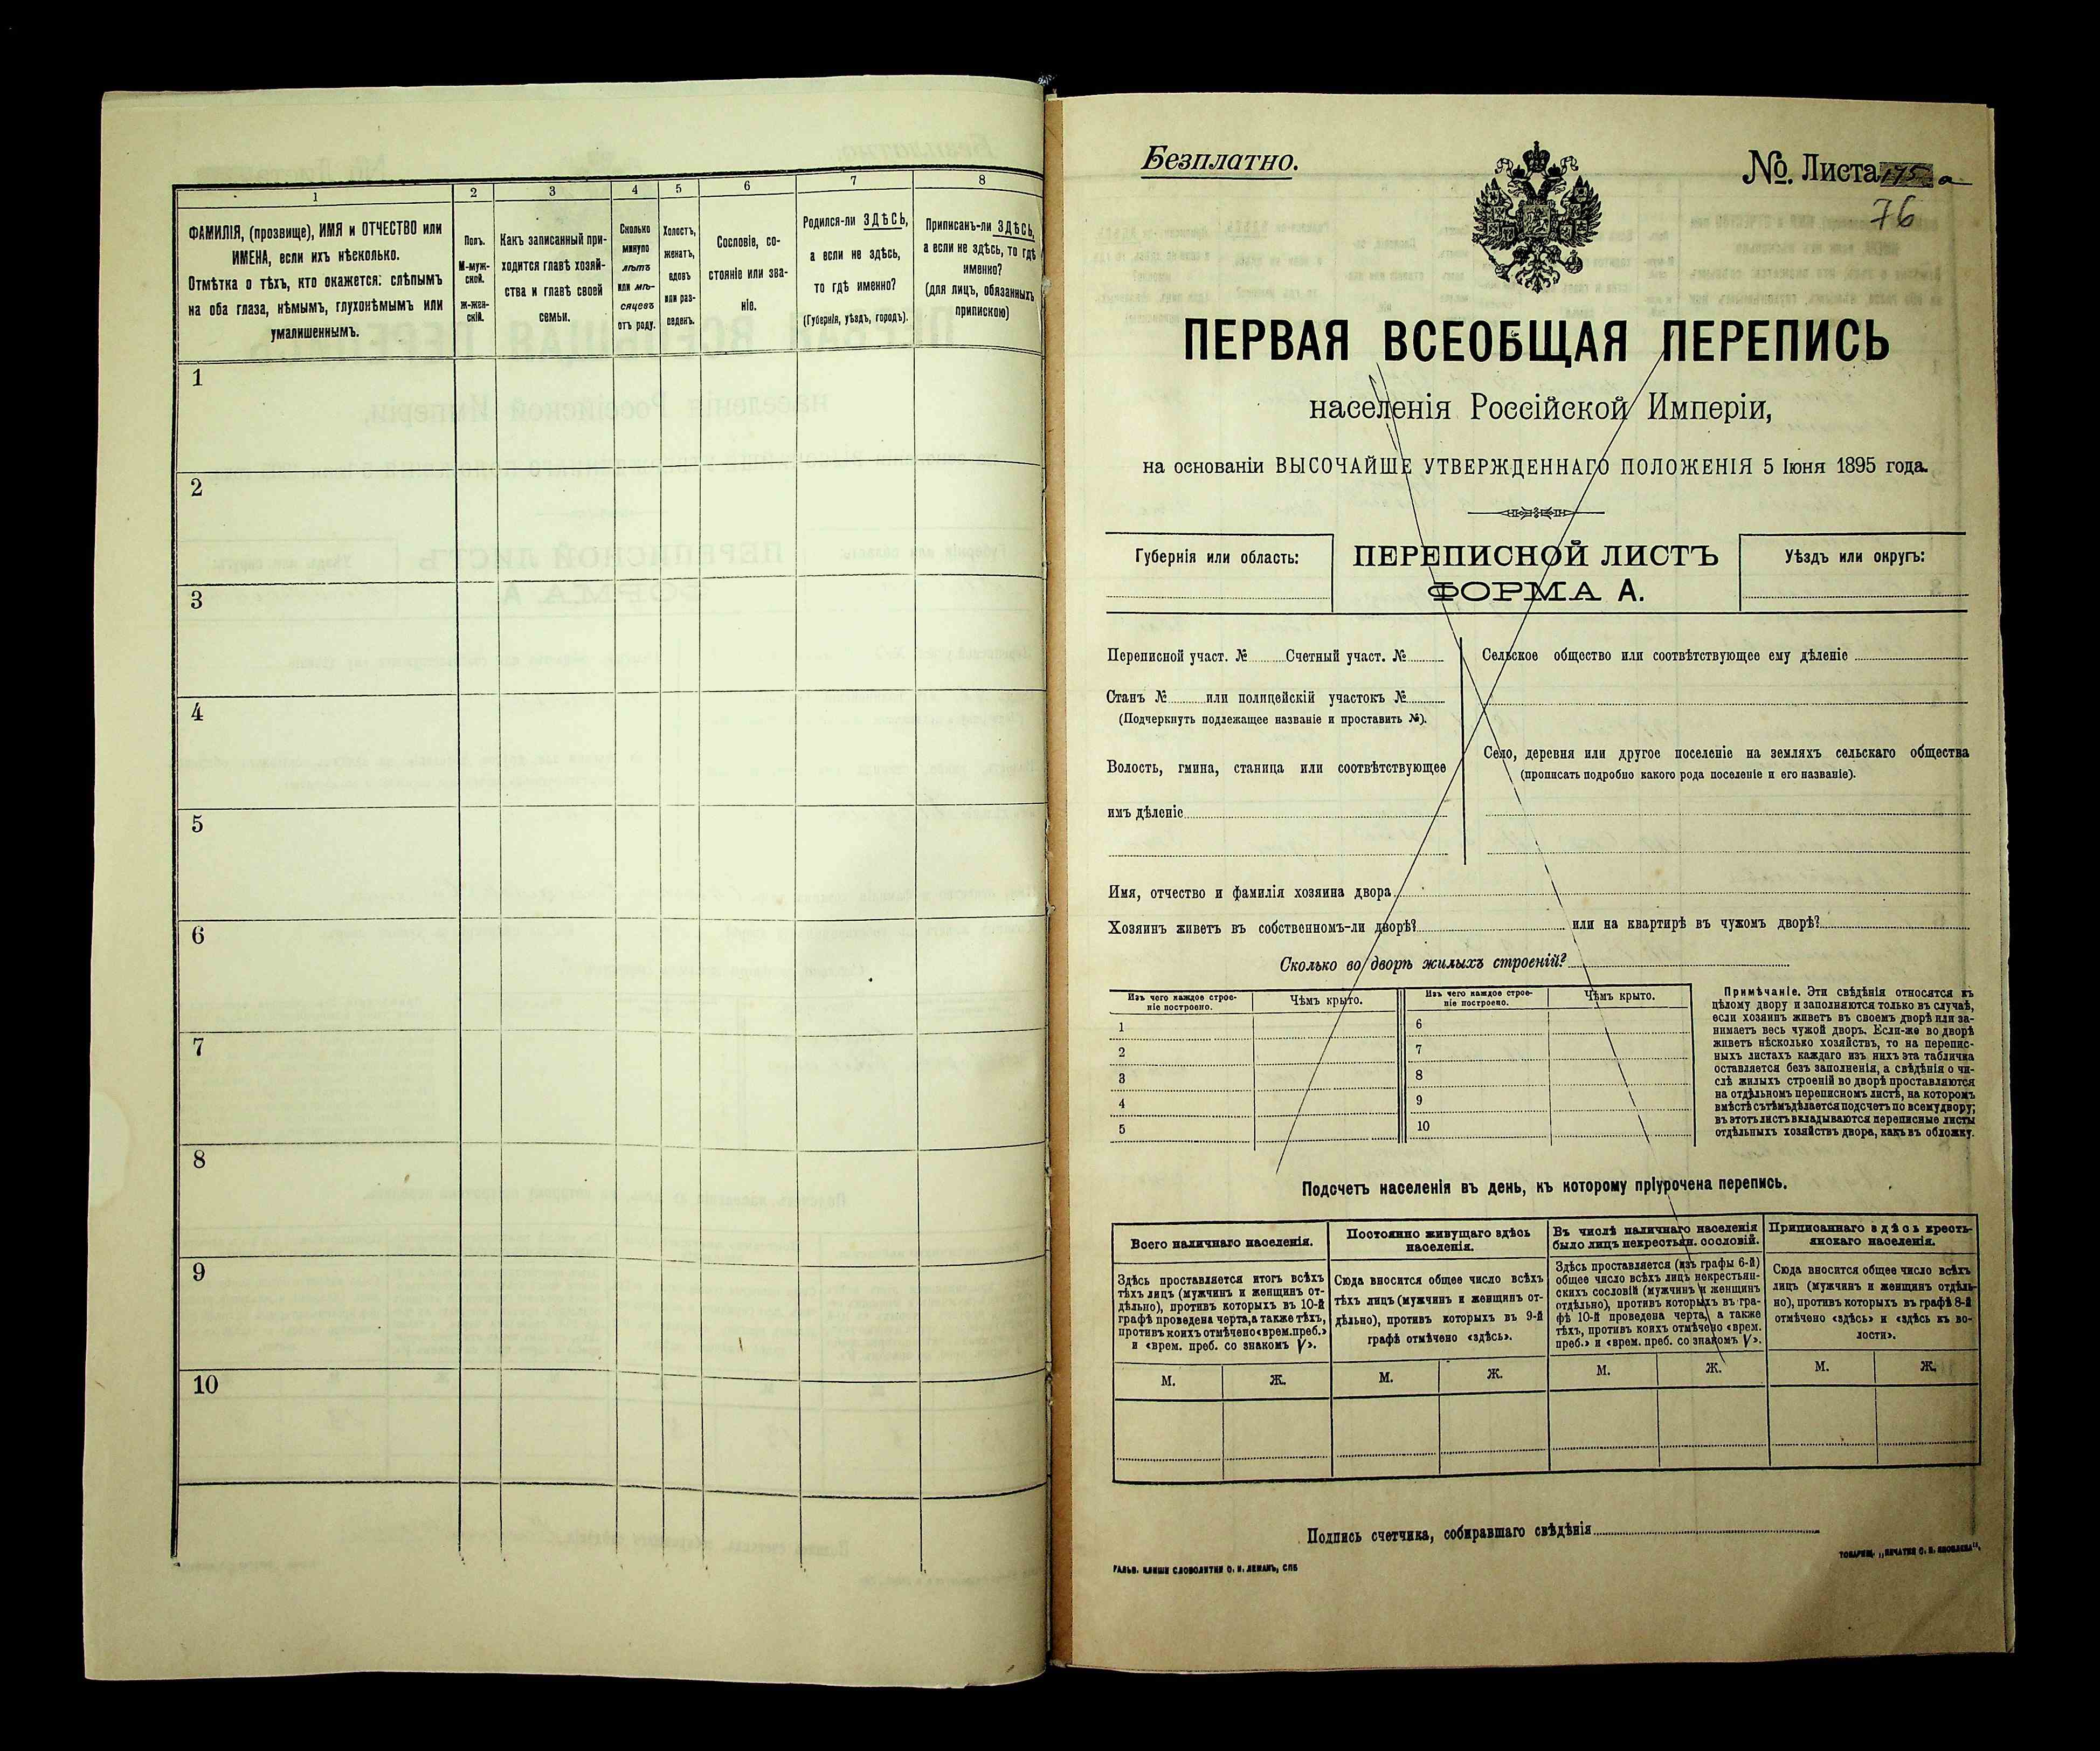 1
2
3
4
5
6
7
8
ФАМИЛІЯ, (прозвище), ИМЯ и ОТЧЕСТВО или
ИМЕНА, если ихъ нѣсколько.
Отмѣтка о тѣхъ, кто окажется: слѣпымъ
на оба глаза, нѣмымъ, глухонѣмымъ или
умалишеннымъ.
Полъ.
М-муж-
ской.
ж-жен-
скій.
Какъ записанный при-
ходится главѣ хозяй-
ства и главѣ своей
семьи.
Сколько
минуло
лѣтъ
или мѣ-
сяцевъ
отъ роду.
Холостъ,
женатъ,
вдовъ
или раз-
веденъ.
Сословіе, со-
стояніе или зва-
ніе.
Родился-ли ЗДѢСЬ,
а если не здѣсь,
то гдѣ именно?
(Губернія, уѣздъ, городъ).
Приписанъ-ли ЗДѢСЬ,
а если не здѣсь, то гдѣ
именно?
(для лицъ, обязанныхъ
припискою)
1
2
3
4
5
6
7
8
9
10
Безплатно.
№. Листа 175 а
76
ПЕРВАЯ ВСЕОБЩАЯ ПЕРЕПИСЬ
населенія Россійской Имперіи,
на основаніи ВЫСОЧАЙШЕ УТВЕРЖДЕННАГО ПОЛОЖЕНІЯ 5 Іюня 1895 года.
Губернія или область:
ПЕРЕПИСНОЙ ЛИСТЪ
ФОРМА А.
Уѣздъ или округъ:
Переписной участ. № Счетный участ. №
Станъ № или полицейскій участокъ №
(Подчеркнуть подлежащее названіе и проставить №).
Волость, гмина, станица или соотвѣтствующее
имъ дѣленіе
Сельское общество или соотвѣтствующее ему дѣленіе
Село, деревня или другое поселеніе на земляхъ сельскаго общества
(прописать подробно какого рода поселеніе и его названіе).
Имя, отчество и фамилія хозяина двора
Хозяинъ живетъ въ собственномъ-ли дворѣ? или на квартирѣ въ чужомъ дворѣ?
Сколько во дворѣ жилыхъ строеній?
Изъ чего каждое строе-
ніе построено.
Чѣмъ крыто.
Изъ чего каждое строе-
ніе построено.
Чѣмъ крыто.
1
2
3
4
5
6
7
8
9
10
Примѣчаніе. Эти свѣдѣнія относятся къ
цѣлому двору и заполняются только въ случаѣ,
если хозяинъ живетъ въ своемъ дворѣ или за-
нимаетъ весь чужой дворъ. Если-же во дворѣ
живетъ нѣсколько хозяйствъ, то на перепис-
ныхъ листахъ каждаго изъ нихъ эта табличка
оставляется безъ заполненія, а свѣдѣнія о чи-
слѣ жилыхъ строеній во дворѣ проставляются
на отдѣльномъ переписномъ листѣ, на которомъ
вмѣстѣ съ тѣмъ дѣлается подсчетъ по всему двору;
въ этотъ листъ вкладываются переписные листы
отдѣльныхъ хозяйствъ двора, какъ въ обложку.
Подсчетъ населенія въ день, къ которому пріурочена перепись.
Всего наличнаго населенія.
Постоянно живущаго здѣсь
населенія.
Въ числѣ наличнаго населенія
было лицъ некрестьян. сословій.
Приписаннаго здѣсь кресть-
янскаго населенія.
Здѣсь проставляется итогъ всѣхъ
тѣхъ лицъ (мужчинъ и женщинъ от-
дѣльно), противъ которыхъ въ 10-й
графѣ проведена черта, а также тѣхъ,
противъ коихъ отмѣчено «врем. преб.»
и «врем. преб. со знакомъ V».
Сюда вносится общее число всѣхъ
тѣхъ лицъ (мужчинъ и женщинъ от-
дѣльно), противъ которыхъ въ 9-й
графѣ отмѣчено «здѣсь».
Здѣсь проставляется (изъ графы 6-й)
общее число всѣхъ лицъ некрестьян-
скихъ сословій (мужчинъ и женщинъ
отдѣльно), противъ которыхъ въ гра-
фѣ 10-й проведена черта, а также
тѣхъ, противъ коихъ отмѣчено «врем.
преб.» и «врем. преб. со знакомъ V».
Сюда вносится общее число всѣхъ
лицъ (мужчинъ и женщинъ отдѣль-
но), противъ которыхъ въ графѣ 8-й
отмѣчено «здѣсь» и «здѣсь къ во-
лости».
М. Ж. М. Ж. М. Ж. М. Ж.
Подпись счетчика, собиравшаго свѣдѣнія
ГАЛЬВ. КЛИШЕ СЛОВОЛИТНИ О. И. ЛЕМАНЪ, СПБ
ТОВАРИЩ. „ПЕЧАТНЯ С. П. ЯКОВЛЕВА“.